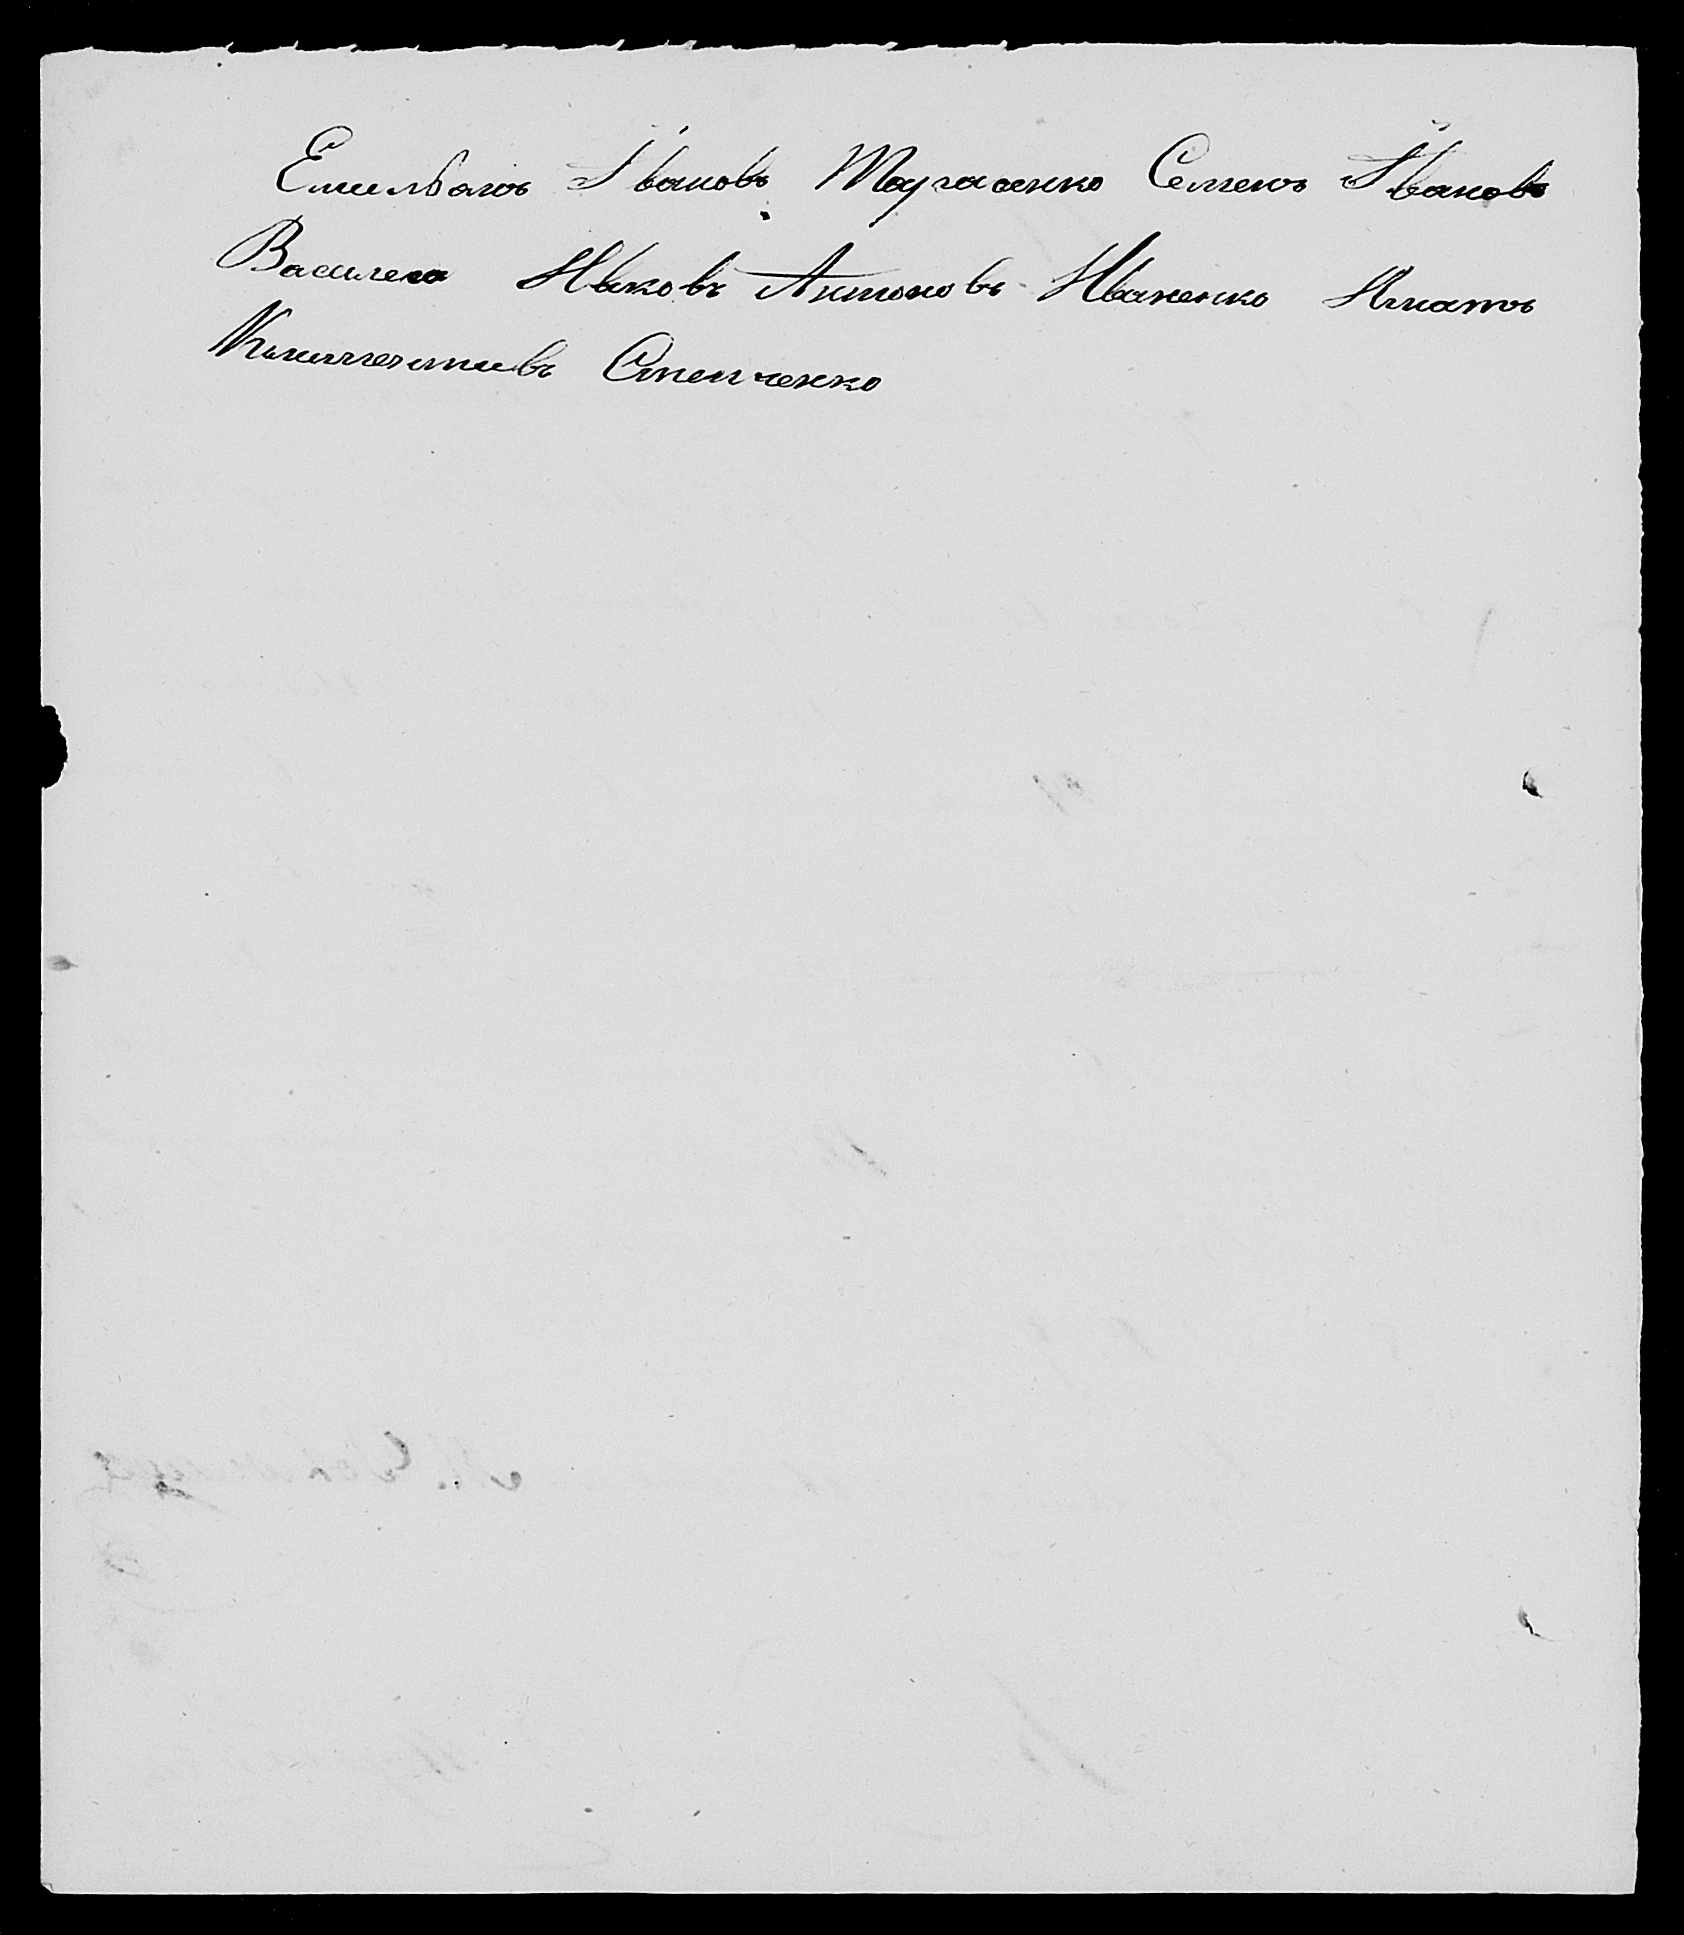 Емильөанъ Івановъ Тарасенко Семенъ Ивановъ
Василенко Яковъ Антоновъ Иваненко Игнатъ
Климентивъ Степченко